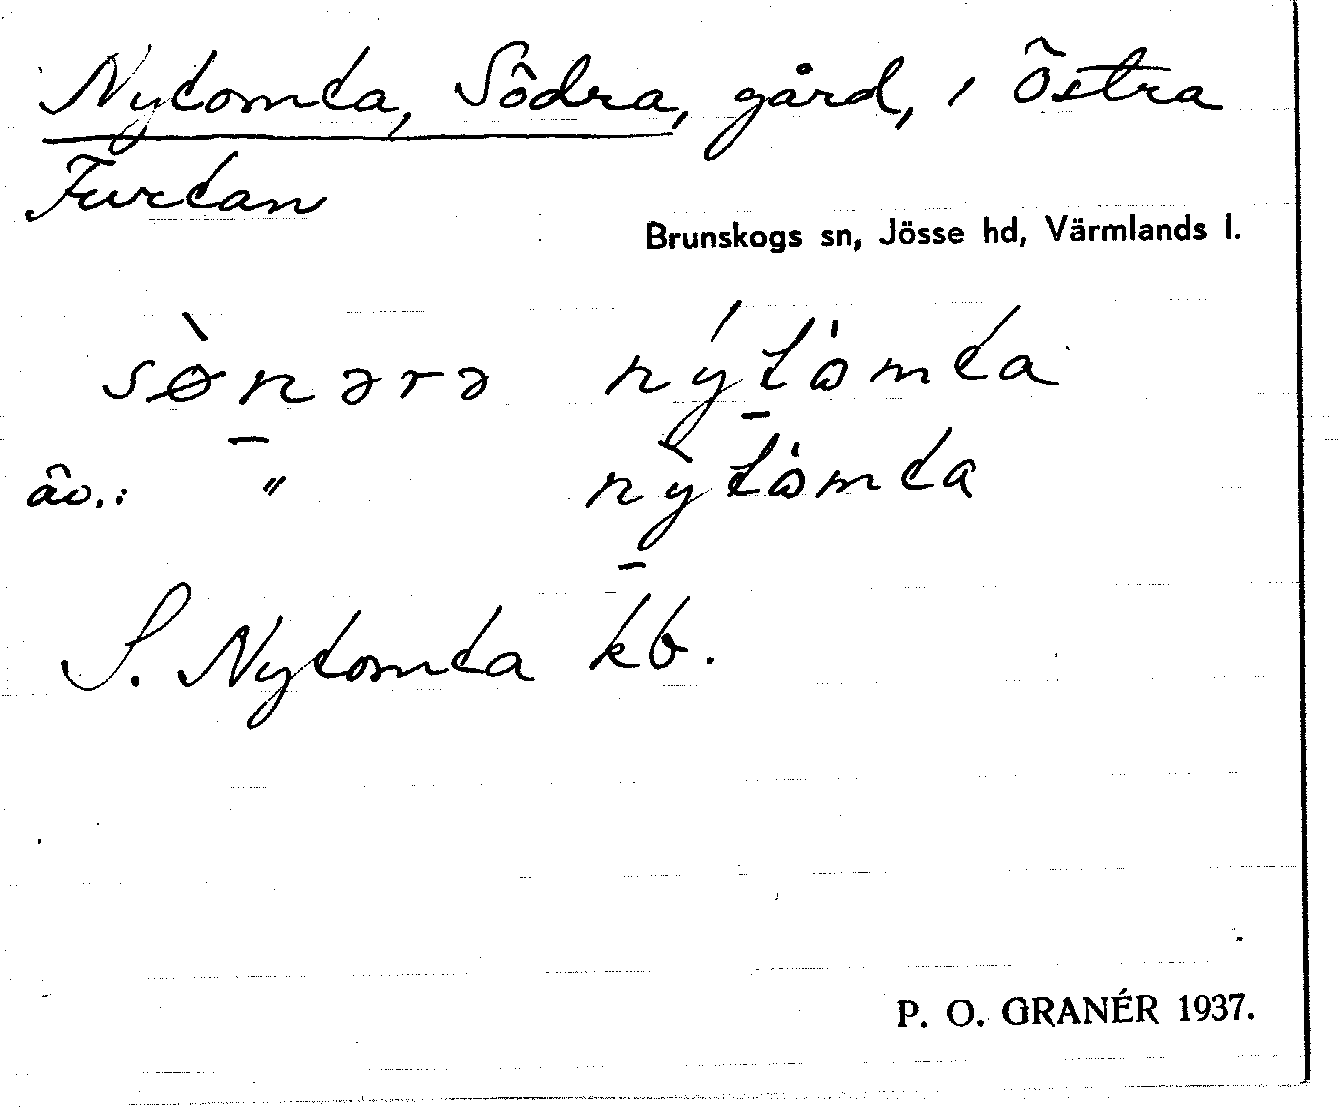 Nytomta, Södra, gård, i Östra
Furtan
Brunskogs sn, Jösse hd, Värmlands l.
sø̀nərə nýtòmta
äv.: " nỳtòmta
S. Nytomta kb.
P. O. GRANÉR 1937.